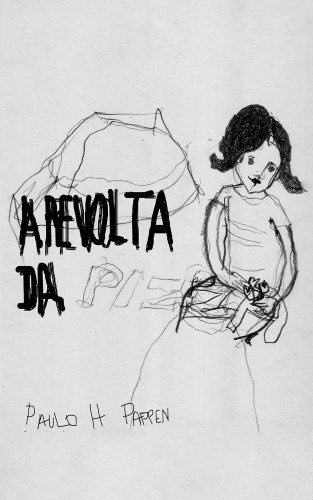 A REVOLTA
DA
PAULO H PAPPEN